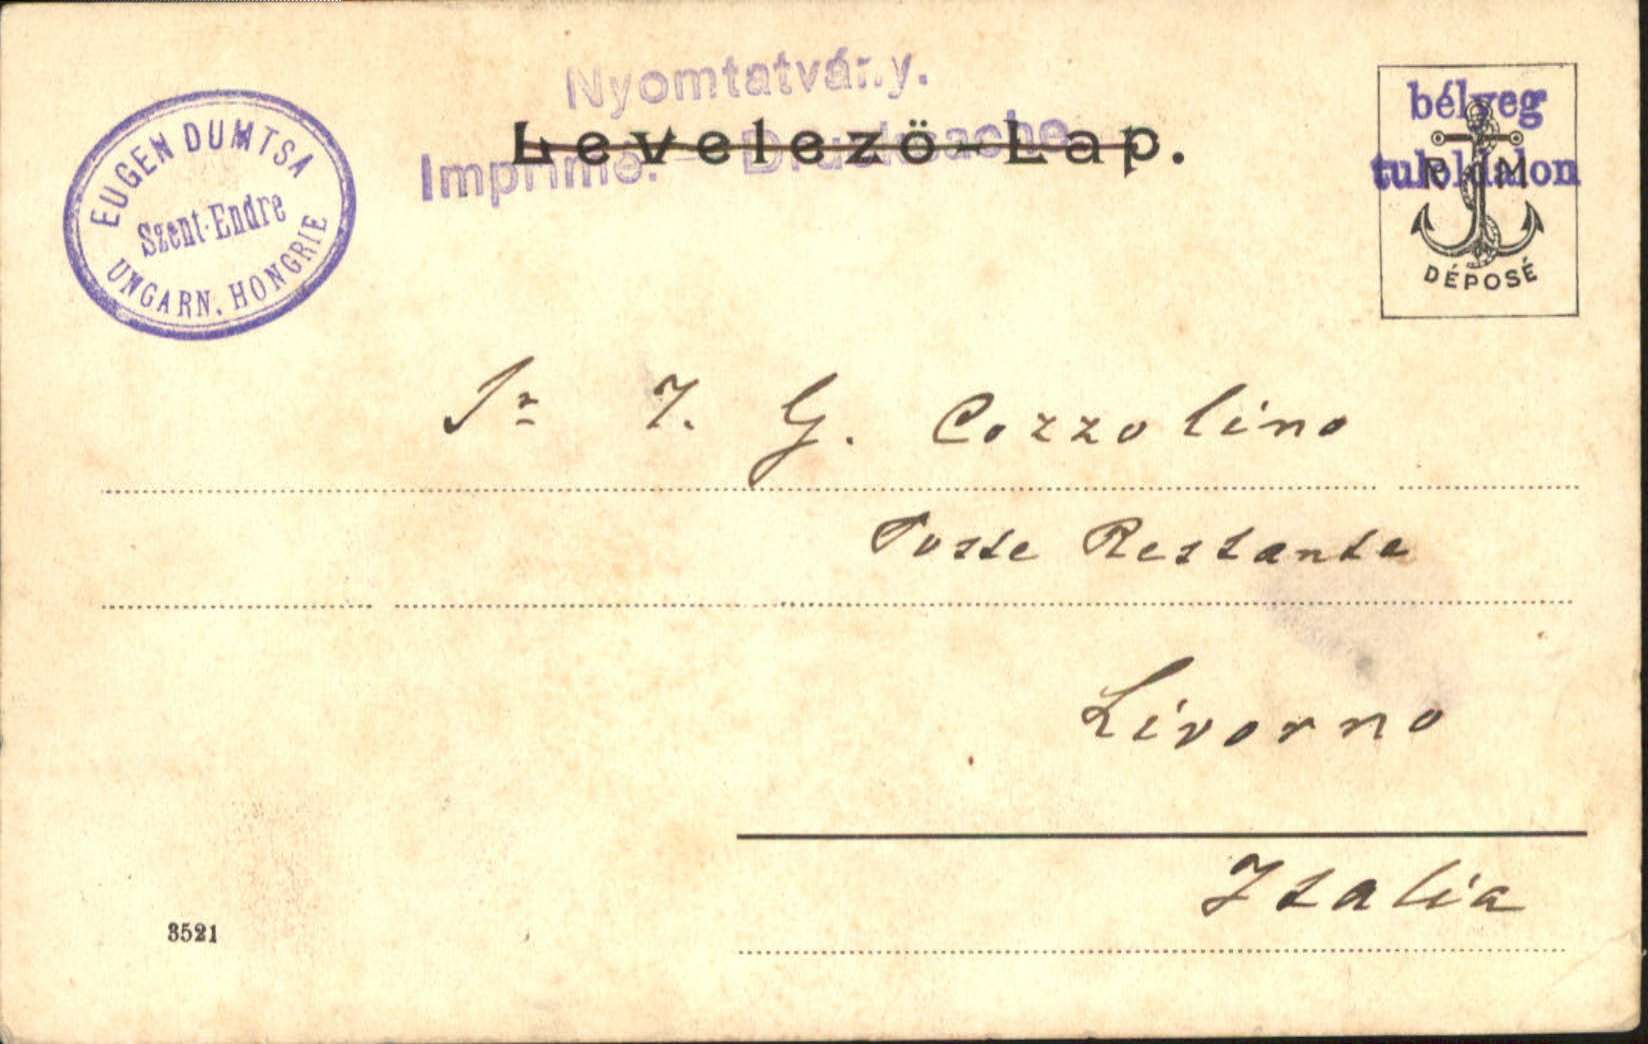 Nyomtatvány.
Levelező-Lap.
Imprimé. Drucksache
EUGEN DUMTSA
Szent-Endre
UNGARN. HONGRIE
bélyeg
tuloldalon
R M
DÉPOSÉ
Sr J. G. Cozzolino
Poste Restante
Livorno
Italia
3521